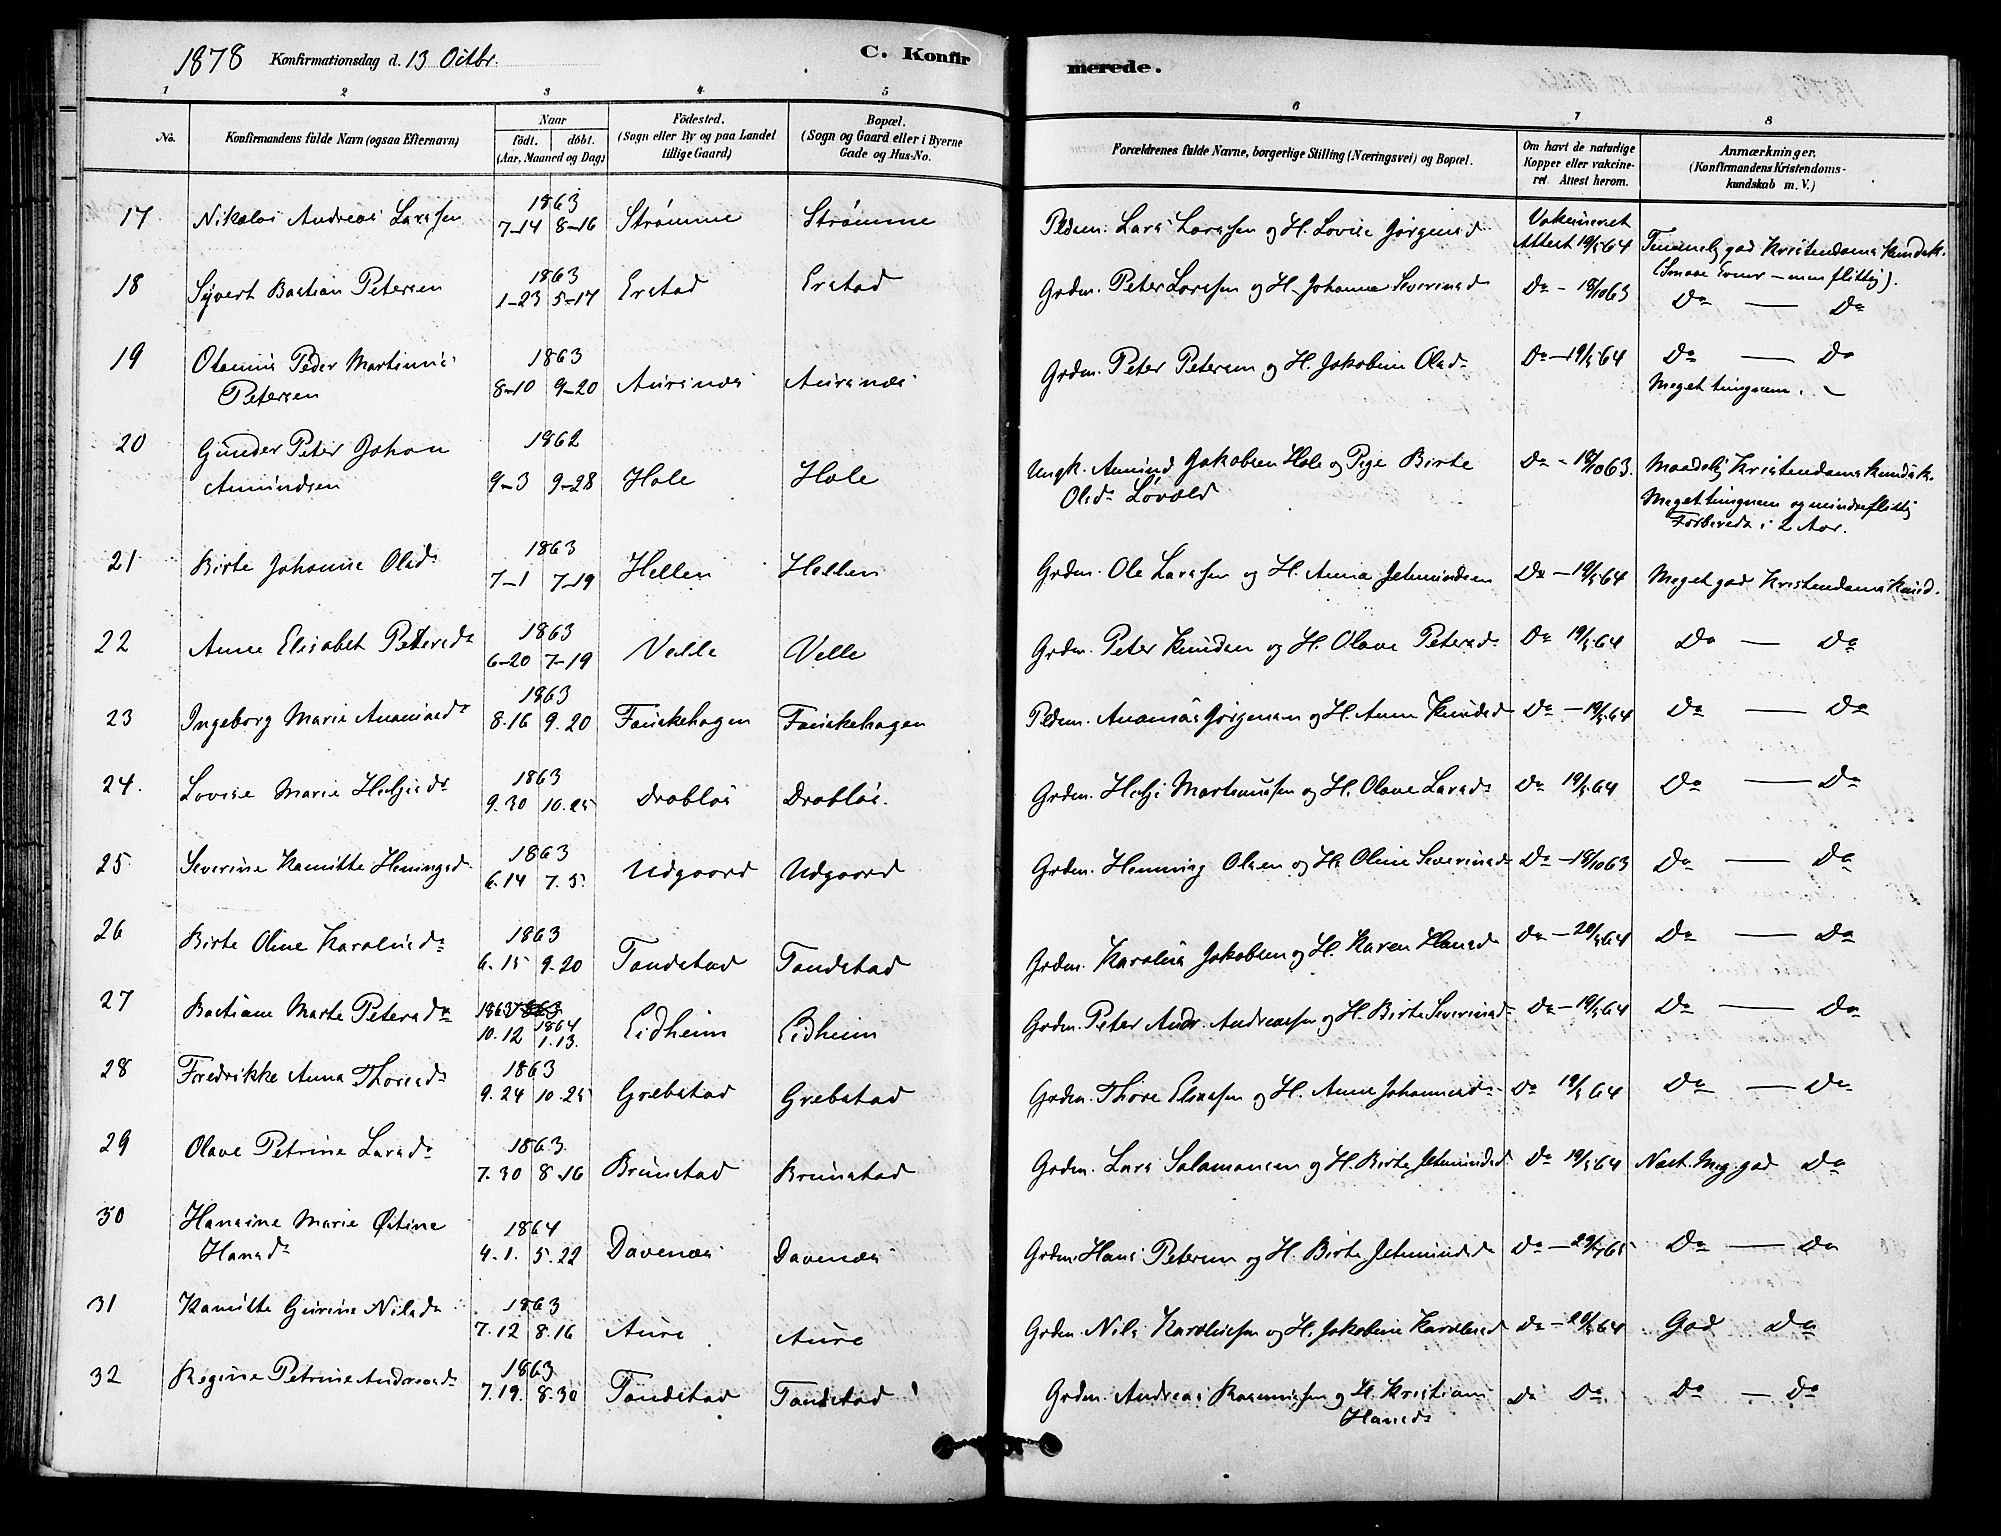 1878 Konfirmationsdag d. 13 Octbr. C. Konfir merede.
1 2 3 4 5 6 7 8
No. Konfirmandens fulde Navn (ogsaa Efternavn) Naar født. døbt. (Aar, Maaned og Dag) Fødested. (Sogn eller By og paa Landet tillige Gaard) Bopæl. (Sogn og Gaard eller i Byerne Gade og Hus-No. Forældrenes fulde Navne, borgerlige Stilling (Næringsvei) og Bopæl. Om havt de naturlige Kopper eller vakcineret. Attest herom. Anmærkninger. (Konfirmandens Kristendomskundskab m. V.)
17 Nikolai Andreas Larssen 1863 7-14 8-16 Strømme Strømme Pldsm. Lars Larssen og H. Lovise Jørgensd. Vakcineret Attest 19/5 64 Temmelig god Kristendomskundsk. (Smaae Evner - men flittig).
18 Syvert Bastian Petersen 1863 1-23 5-17 Erstad Erstad Grdm. Peter Larssen og H. Johanne Severinsd. Do - 18/10 63 Do — Do
19 Olanus Peder Martinus Petersen 1863 8-10 9-20 Aursnæs Aursnæs Grdm. Peter Petersen og H. Jakobine Olsd. Do - 19/5 64 Do — Do Meget tungnem.
20 Gunder Peter Johan Amundsen 1862 9-3 9-28 Hole Hole Ungk. Amund Jakobsen Hole og Pige Birte Olsd. Løvold Do - 18/10 63. Maadelig Kristendomskundsk. Meget tungnem og mindre flittig Forberedt i 2 Aar.
21 Birte Johanne Olsd. 1863 7-1 7-19 Hellen Hellen Grdm. Ole Larssen og H. Anna Jetmundsen Do - 19/5 64 Meget god Kristendomskund.
22 Anne Elisabet Petersd. 1863 6-20 7-19 Velle Velle Grdm. Peter Knudsen og H. Olave Petersd. Do 19/5 64 Do — Do
23 Ingeborg Marie Ananiasd. 1863 8.16 9.20 Fauskehagen Fauskehagen Pldsm. Ananias Jørgensen og H. Anne Knudsd. Do - 19/5 64 Do — Do
24. Lovise Marie Heljesd. 1863 9.30 10.25 Drabløs Drabløs. Grdm. Helje Martinussen og H. Olave Larsd. Do 19/5 64 Do — Do
25 Severine Kamitte Henningsd. 1863 6.14 7.5. Udgaard Udgaard Grdm. Henning Olsen og H. Oline Severinsd. Do - 18/10 63 Do — Do
26 Birte Oline Karolusd. 1863 6.15 9.20 Tandstad Tandstad Grdm. Karolus Jakobsen og H. Karen Hansd. Do - 20/5 64 Do — Do
27 Bastiane Marte Petersd. 1863 10.12 1864 1.13. Eidheim Eidheim Grdm. Peter Andr. Andreassen og H. Birte Severinsd. Do - 19/5 64 Do — Do
28 Fredrikke Anna Thoresd. 1863 9.24 10.25 Grebstad Grebstad Grdm. Thore Eliassen og H. Anne Johannesd. Do 19/5 64 Do — Do
29 Olave Petrine Larsd. 1863. 7.30 8.16 Brunstad Brunstad Grdm. Lars Salamonsen og H. Birte Jetmundsd. Do 19/5 64 Næst. Meg. god Do
30 Hansine Marie Østine Hansd. 1864 4.1. 5.22 Davenæs Davenæs Grdm. Hans Petersen og H. Birte Jetmundsd. Do Do — Do
31 Kamitte Gurine Nilsd. 1863 7.12 8.16 Aure Aure Grdm. Nils Karolussen og H. Jakobine Karolusd. Do - 20/5 64 God Do
32 Regine Petrine Andreasd. 1863 7.19. 8.30 Tandstad Tandstad Grdm. Andreas Rasmussen og H. Kristiane Hansd. Do Do. Do — Do